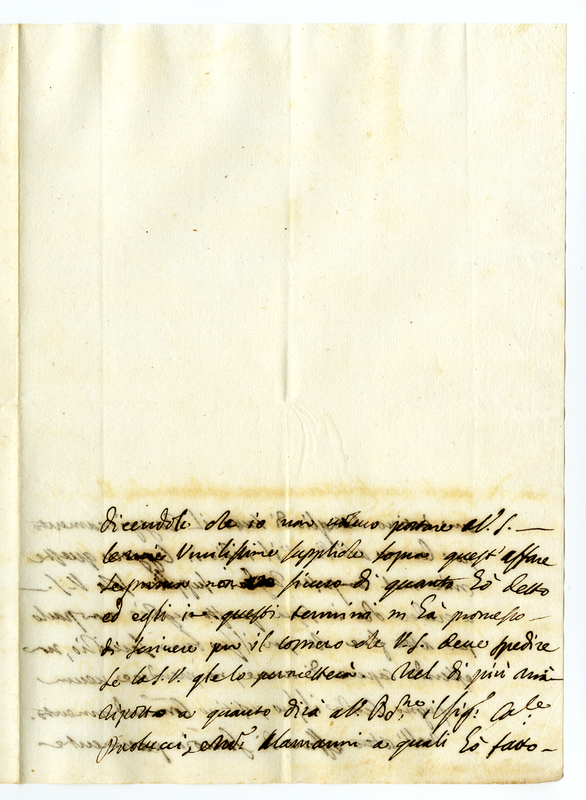 dicendole che io non volevo portare a V. S. —
le mie Umilissime suppliche sopra quest'affare
se prima non sicuro di quanto hò detto
ed egli in questi termini m'hà promesso —
di scrivere per il corriero che V. S. deve spedire
se la S. V. glelo permetterà Nel di più mi
riporto a quanto dirà a V. il Sig.
Paolucci, e Alamanni a quali hò fatto —